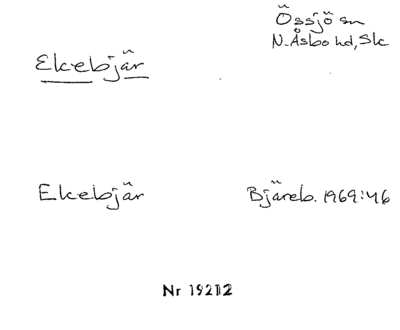 Össjö sn
N. Åsbo hd, Slc
Ekebjär
Ekebjär
Bjäreb. 1969:46
Nr 19212